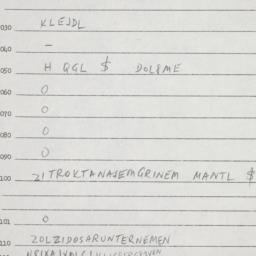 030 KLEJDL
040 –
050 H QGL $ DOL&ME
060 O
070 O
080 O
090 O
100 ZITROKTANAJEMGRINEM MANTL $
101 O
110 ZOLZIDOSARUNTERNEMEN